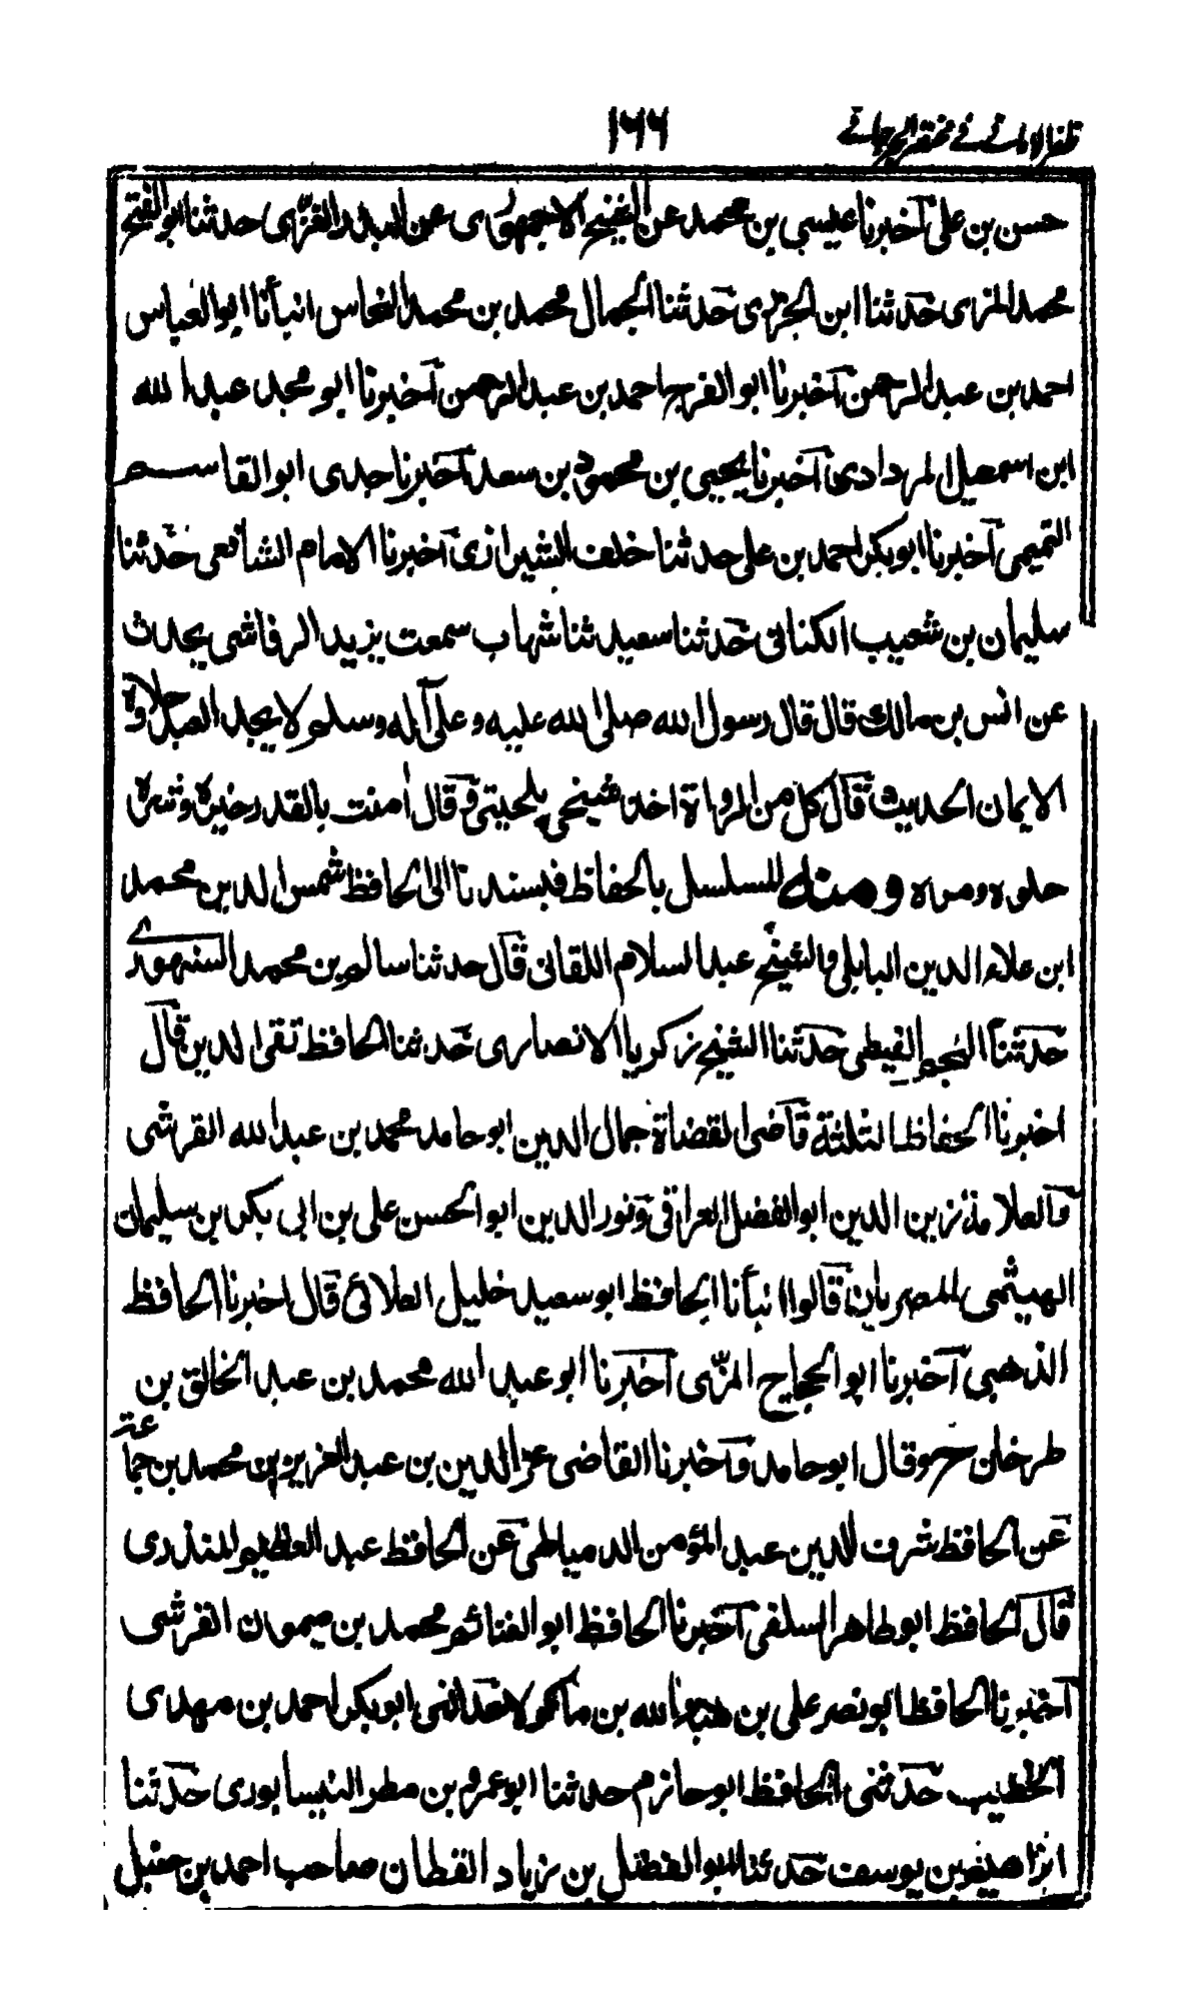 ظفر الامانے فے مختصر الجرجانے
١٦٦
حسن بن علی اخبرنا عیسی بن محمد عن الشیخ الاجهوری عن البدر الغزی حدثنا ابو الفتح
محمد المزی حدثنا ابن الجزری حدثنا الجمال محمد بن محمد النحاس انبأنا ابو العباس
احمد بن عبد الرحمن اخبرنا ابو الفرج احمد بن عبد الرحمن اخبرنا ابو محمد عبد الله
ابن اسمعیل المردادی اخبرنا یحیی بن محمود بن سعد اخبرنا جدی ابو القاسم
التمیمی اخبرنا ابو بکر احمد بن علی حدثنا خلف الشیرازی اخبرنا الامام الشافعی حدثنا
سلیمان بن شعیب الکنانی حدثنا سعید ثنا شهاب سمعت یزید الرقاشی یحدث
عن انس بن مالك قال قال رسول الله صلی الله علیه وعلی آله وسلم لا یجد العبد حلاوة
الایمان الحدیث قال کل من الرواة اخذ شیخی بلحیتی وقال اٰمنت بالقدر خیره وشره
حلوه ومره ومنه المسلسل بالحفاظ فبسندنا الی الحافظ شمس الدین محمد
ابن علاء الدین البابلی والشیخ عبد السلام اللقانی قال حدثنا سالم بن محمد السنهوری
حدثنا النجم الغیطی حدثنا الشیخ زکریا الانصاری حدثنا الحافظ تقی الدین قال
اخبرنا الحفاظ الثلثة قاضی القضاة جمال الدین ابو حامد محمد بن عبد الله القرشی
والعلامة زین الدین ابو الفضل العراقی ونور الدین ابو الحسن علی بن ابی بکر بن سلیمان
الهیثمی المصریان قالوا انبأنا الحافظ ابو سعید خلیل العلائی قال اخبرنا الحافظ
الذهبی اخبرنا ابو الحجاج المزّی اخبرنا ابو عبد الله محمد بن عبد الخالق بن
طرخان ح وقال ابو حامد واخبرنا القاضی عز الدین بن عبد العزیز بن محمد بن جماعة
عن الحافظ شرف الدین عبد المؤمن الدمیاطی عن الحافظ عبد العظیم المنذری
قال الحافظ ابو طاهر السلفی اخبرنا الحافظ ابو الغنائم محمد بن میمون القرشی
اخبرنا الحافظ ابو نصر علی بن هبة الله بن ماکولا حدثنی ابو بکر احمد بن مهدی
الخطیب حدثنی الحافظ ابو حازم حدثنا ابو عمرو بن مطر النیسابوری حدثنا
ابراهیم بن یوسف حدثنا ابو الفضل بن زیاد القطان صاحب احمد بن حنبل